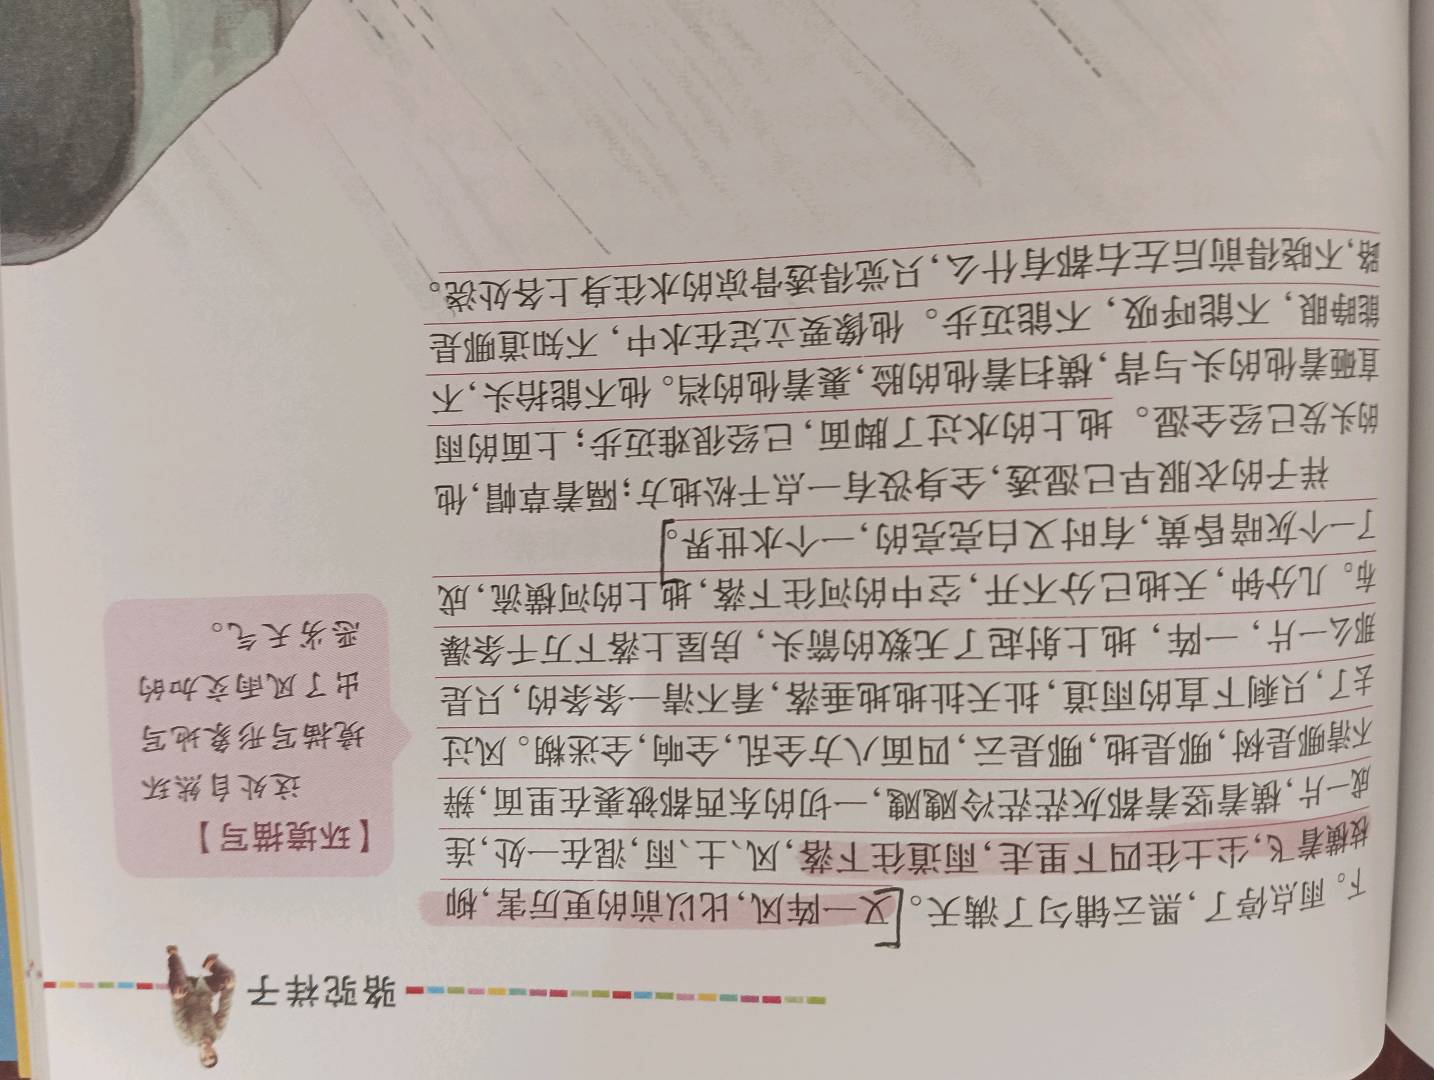 骆驼祥子
下。雨点停了，黑云铺匀了满天。又一阵风，比以前的更厉害，柳
枝横着飞，尘土往四下里走，雨道往下落，风、土、雨，混在一处，连
成一片，横着竖着都灰茫茫冷飕飕，一切的东西都被裹在里面，辨
不清哪是树，哪是地，哪是云，四面八方全乱，全响，全迷糊。风过
去了，只剩下直的雨道，扯天扯地地垂落，看不清一条条的，只是
那么一片，一阵，地上射起了无数的箭头，房屋上落下万千条瀑
布。几分钟，天地已分不开，空中的河往下落，地上的河横流，成
了一个灰暗昏黄，有时又白亮亮的，一个水世界。
祥子的衣服早已湿透，全身没有一点干松地方；隔着草帽，他
的头发已经全湿。地上的水过了脚面，已经很难迈步；上面的雨
直砸着他的头与背，横扫着他的脸，裹着他的裆。他不能抬头，不
能睁眼，不能呼吸，不能迈步。他像要立定在水中，不知道哪是
路，不晓得前后左右都有什么，只觉得透骨凉的水往身上各处浇。
【环境描写】
这处自然环
境描写形象地写
出了风雨交加的
恶劣天气。